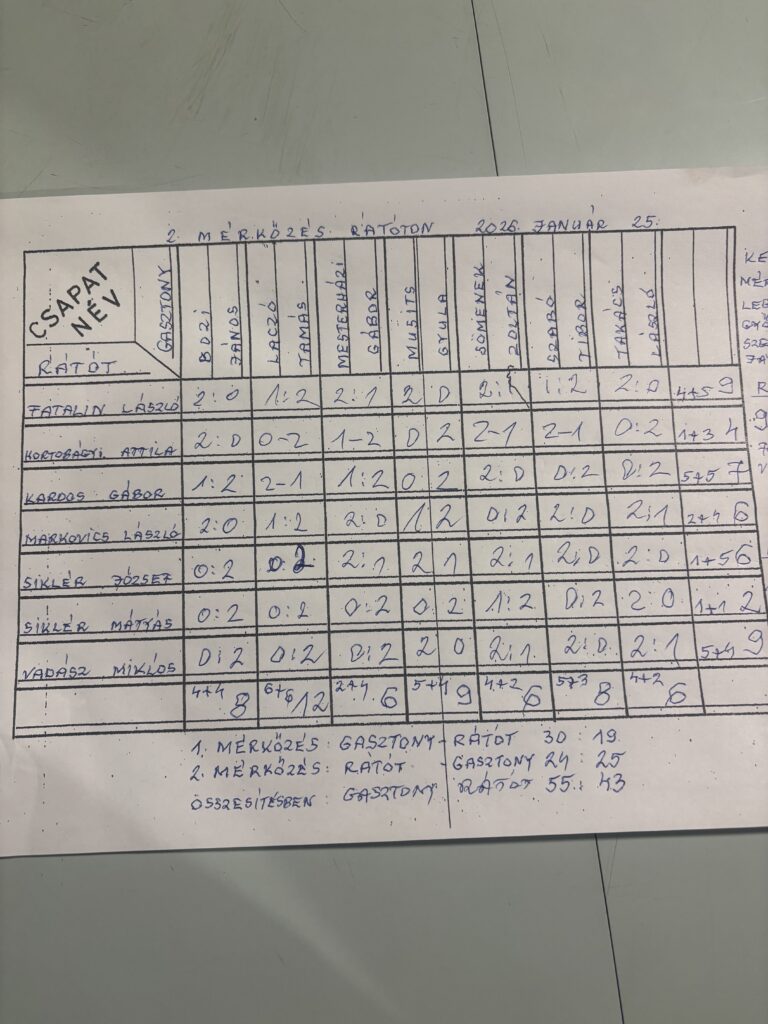 2. MÉRKŐZÉS RÁTÓTON 2026. JANUÁR 25.
CSAPAT NÉV
GASZTONY
RÁTÓT
BOZI JÁNOS
LACZÓ TAMÁS
MESTERHÁZI GÁBOR
MUSITS GYULA
SÖMENEK ZOLTÁN
SZABÓ TIBOR
TAKÁCS LÁSZLÓ
FATALIN LÁSZLÓ 2:0 1:2 2:1 2 0 2: 1:2 2:0 4+5 9
KORTOBÁGYI ATTILA 2:0 0-2 1-2 0 2 2-1 2-1 0:2 1+3 4
KARDOS GÁBOR 1:2 2-1 1:2 0:2 2:0 0:2 0:2 5+5 7
MARKOVICS LÁSZLÓ 2:0 1:2 2:0 1 2 0:2 2:0 2:1 2+4 6
SIKLÉR JÓZSEF 0:2 0:2 2:1 2 1 2:1 2:0 2:0 1+5 6
SIKLÉR MÁTYÁS 0:2 0:2 0:2 0 2 1:2 0:2 2:0 1+1 2
VADÁSZ MIKLÓS 0:2 0:2 0:2 2 0 2:1 2:0 2:1 5+4 9
4+4 8 6+6 12 2+4 6 5+4 9 4+2 6 5+3 8 4+2 6
1. MÉRKŐZÉS: GASZTONY - RÁTÓT 30:19
2. MÉRKŐZÉS: RÁTÓT - GASZTONY 24:25
ÖSSZESÍTÉSBEN: GASZTONY RÁTÓT 55:43